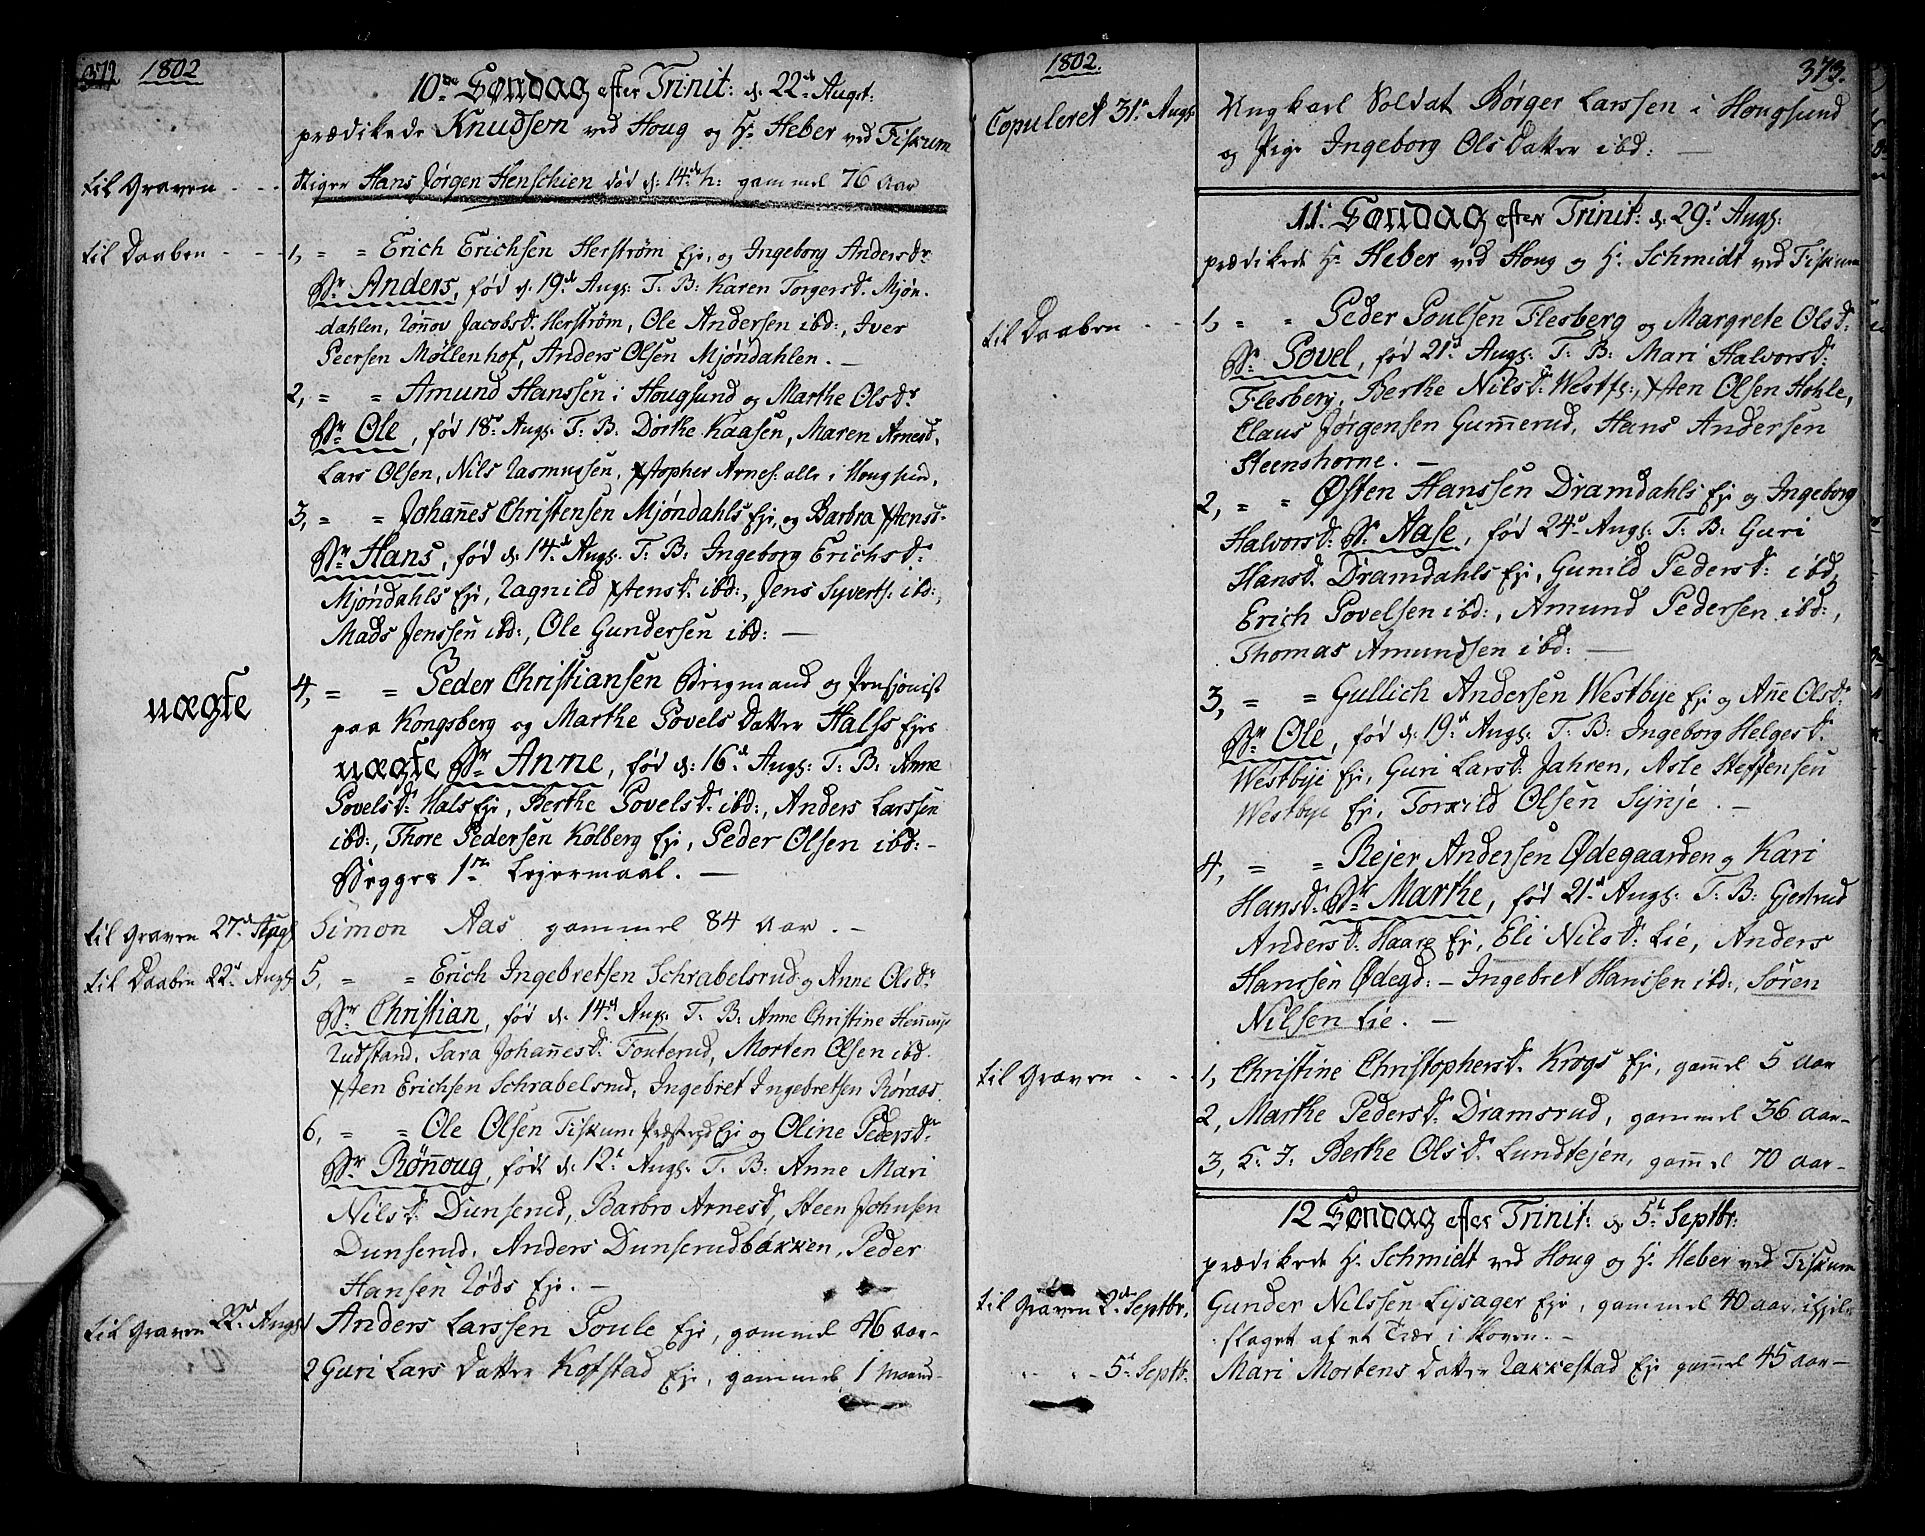 372 1802
10de Søndag efter Trinit: d: 22d Augst:
prædikede Knudsen ved Houg og Hr Heber ved Fiskum
til Graven - - Stiger Hans Jørgen Henschien død d: 14d h: gammel 76 Aar
til Daaben - - 1, " " Erich Erichsen Herstrøm Eje, og Ingeborg Andersdr
Br Anders, fød d: 19d Augs: T: B: Karen Torgersd. Mjøn-
dahlen, Rønnov Jacobsd. Herstrøm, Ole Andersen ibd:, Iver
Peersen Møllenhof, Anders Olsen Mjøndahlen. —
2, " " Amund Hanssen i Hougsund og Marthe Olsdr
Br Ole, fød 18d Augs: T: B. Dorthe Kaasen, Maren Arnesd,
Lars Olsen, Nils Rasmussen, Xstopher Arnes: alle i Hougsund,
3, " " Johannes Christensen Mjøndahls Eje, og Barbra Xstensd.
Br Hans, fød d: 14d Augs: T: B: Ingeborg Erichsdr:
Mjøndahls Eje, Ragnild Xstensd: ibd:, Jens Syverts: ibd:,
Mads Jenssen ibd:, Ole Gundersen ibd: —
uægte 4, " " Peder Christiansen Bergmand og Pensjonist
paa Kongsberg og Marthe Povels Datter Halss Ejes
uægte Br Anne, fød d: 16d Augs: T: B: Anne
Povelsdr: Hals Eje, Berthe Povelsdr: ibd:, Anders Larssen
ibd:, Thore Pedersen Kolberg Eje, Peder Olsen ibd: -
Begges 1ste Lejermaal. —
til Graven 27d Augs Simon Aas gammel 84 Aar. —
til Daaben 22d Augs 5, " " Erich Ingebretsen Schrabelsrud og Anne Olsdr
Br Christian, fød d: 14d Augs: T. B: Anne Christine
Rudstand, Sara Johannesd: Fouterud, Morten Olsen ibd.
Xsten Erichsen Schrabelsrud, Ingebret Ingebretsen Røraas.
6, " " Ole Olsen Fiskum Eje og Oline Pedersdr
Br Rønnoug, født d: 12d Augs: T. B: Anne Mari
Nilsd: Dunserud, Barbro Arnesd, Steen Johnsen
Dunserud. Anders Dunserudbakken, Peder
Hansen Røds Eje. —
til Graven 22d Augs 1 Anders Larssen Poule Eje, gammel 46 Aar -
2 Guri Lars Datter Kofstad Eje, gammel 1 Maaned -
1802. 373.
Copuleret 31d Augs Ungkarl Soldat Børger Larssen i Hougsund
og Pige Ingeborg Ols Datter ibd: —
11: Søndag efter Trinit: d: 29d Augs:
prædikede Hr Heber ved Houg og Hr: Schmidt ved Fiskum
til Daaben - - 1, " " Peder Poulsen Flesberg og Margrete Olsdr:
Br: Povel, fød 21d Augs: T: B: Mari Halvorsdr:
Flesberg, Berthe Nilsd: Westf:, Xsten Olsen Hohle,
Claus Jørgensen Gunnerud, Hans Andersen
Steenshorne. —
2, " " Østen Hanssen Dramdahls Eje og Ingeborg
Halvorsd: Br: Aase, fød 24d Augs: T: B: Guri
Hansd. Dramdahls Eje, Gunild Pedersd: ibd,
Erich Povelsen ibd:, Amund Pedersen ibd:,
Thomas Amundsen ibd: —
3, " " Gullich Andersen Westbye Eje og Anne Olsdr:
Br: Ole, fød d: 19d Augs: T: B: Ingeborg Helgesdr.
Westbye Eje, Guri Larsd: Jahren, Asle Steffensen
Westbye Eje, Torkild Olsen Synje. —
4, " " Rejer Andersen Ødegaarden og Kari
Hansd: Br: Marthe, fød 21d Augs: T: B: Gjertrud
Andersdr: Haare Eje, Eli Nilsdr: Lie, Anders
Hanssen Ødegd: - Ingebret Hanssen ibd:, Søren
Nilsen Lie. —
til Graven - - 1, Christine Christophersdr. Krogs Eje, gammel 5 Aar
2, Marthe Pedersdr: Dramsrud, gammel 36 Aar-
3, Berthe Olsdr Lundtejen, gammel 70 Aar-
12 Søndag efter Trinit: d: 5d Septbr:
prædikede Hr Schmidt ved Houg og Hr: Heber ved Fiskum
til Graven 2d Septbr. Gunder Nilssen Lysager Eje, gammel 40 Aar, ihjel-
slaget af et Træ i Skoven. -
" " 5d Septbr. Mari Mortens Datter Rakkestad Eje gammel 45 Aar —